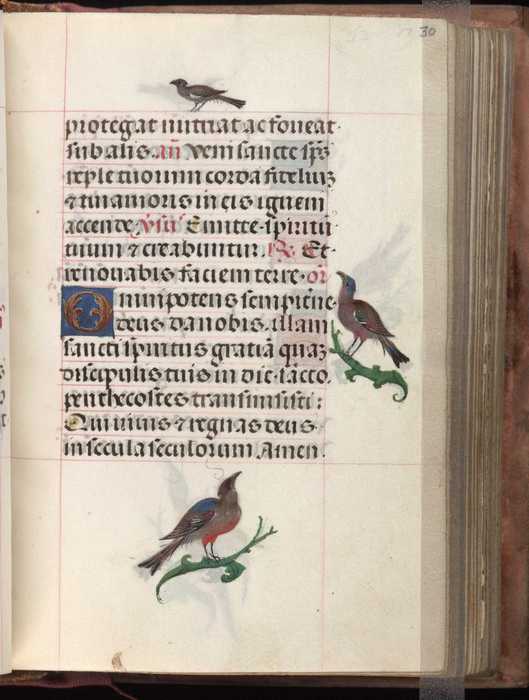 30
protegat nutriat ac foveat·
sub alis. añ Veni sancte sp̄s
reple tuorum corda fideliuꝫ
& tui amoris in eis ignem
accende ỹsus Emitte·spiritū
tuum & creabuntur. R. Et·
renovabis faciem terre· or̄
Omnipotens sempiterne
deus. da nobis. illam
sancti spiritus gratiā quaꝫ
discipulis tuis in die· sācto.
penthecostes transmisisti:
Qui vivis & regnas deus·
in secula seculorum Amen.